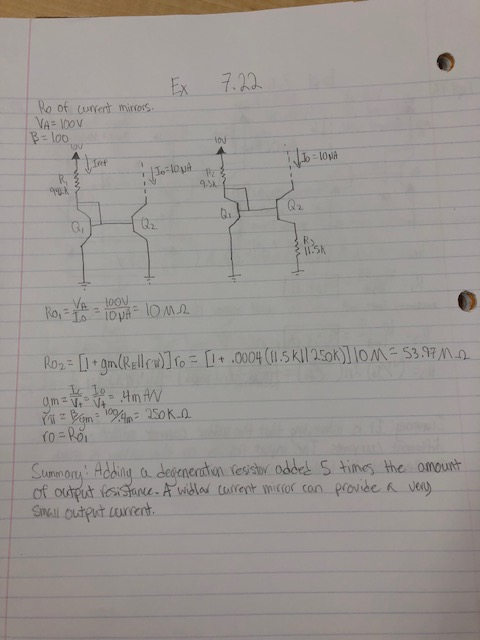 Ex 7.22
Ro of current mirrors.
VA = 100V
β = 100
10V
Iref
R1
Io = 10μA
Q1
Q2
10V
R2
9.3k
Io = 10μA
Q1
Q2
R3
11.5k
Ro1 = VA/Io = 100V/10μA = 10 MΩ
Ro2 = [1 + gm(RE||rπ)] ro = [1 + .0004(11.5k||250k)] 10M = 53.97 MΩ
gm = Ic/Vt = Io/Vt = .4mA/V
rπ = β/gm = 100/.4m = 250KΩ
ro = Ro1
Summary: Adding a degeneration resistor added 5 times the amount
of output resistance. A widlar current mirror can provide a very
small output current.